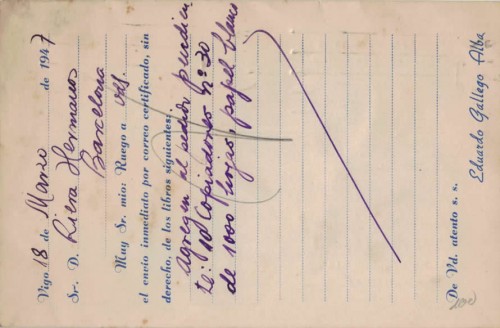 Vigo 18 de Marzo de 1947
Sr. D. Riera Hermanos
Barcelona
Muy Sr. mío: Ruego a Vds
el envío inmediato por correo certificado, sin
derecho, de los libros siguientes:
Agregen al pedido pendien
te: 10 Copiadores nº 30
de 1000 hojas, papel blanco
De Vd. atento s. s.
Eduardo Gallego Alba
200